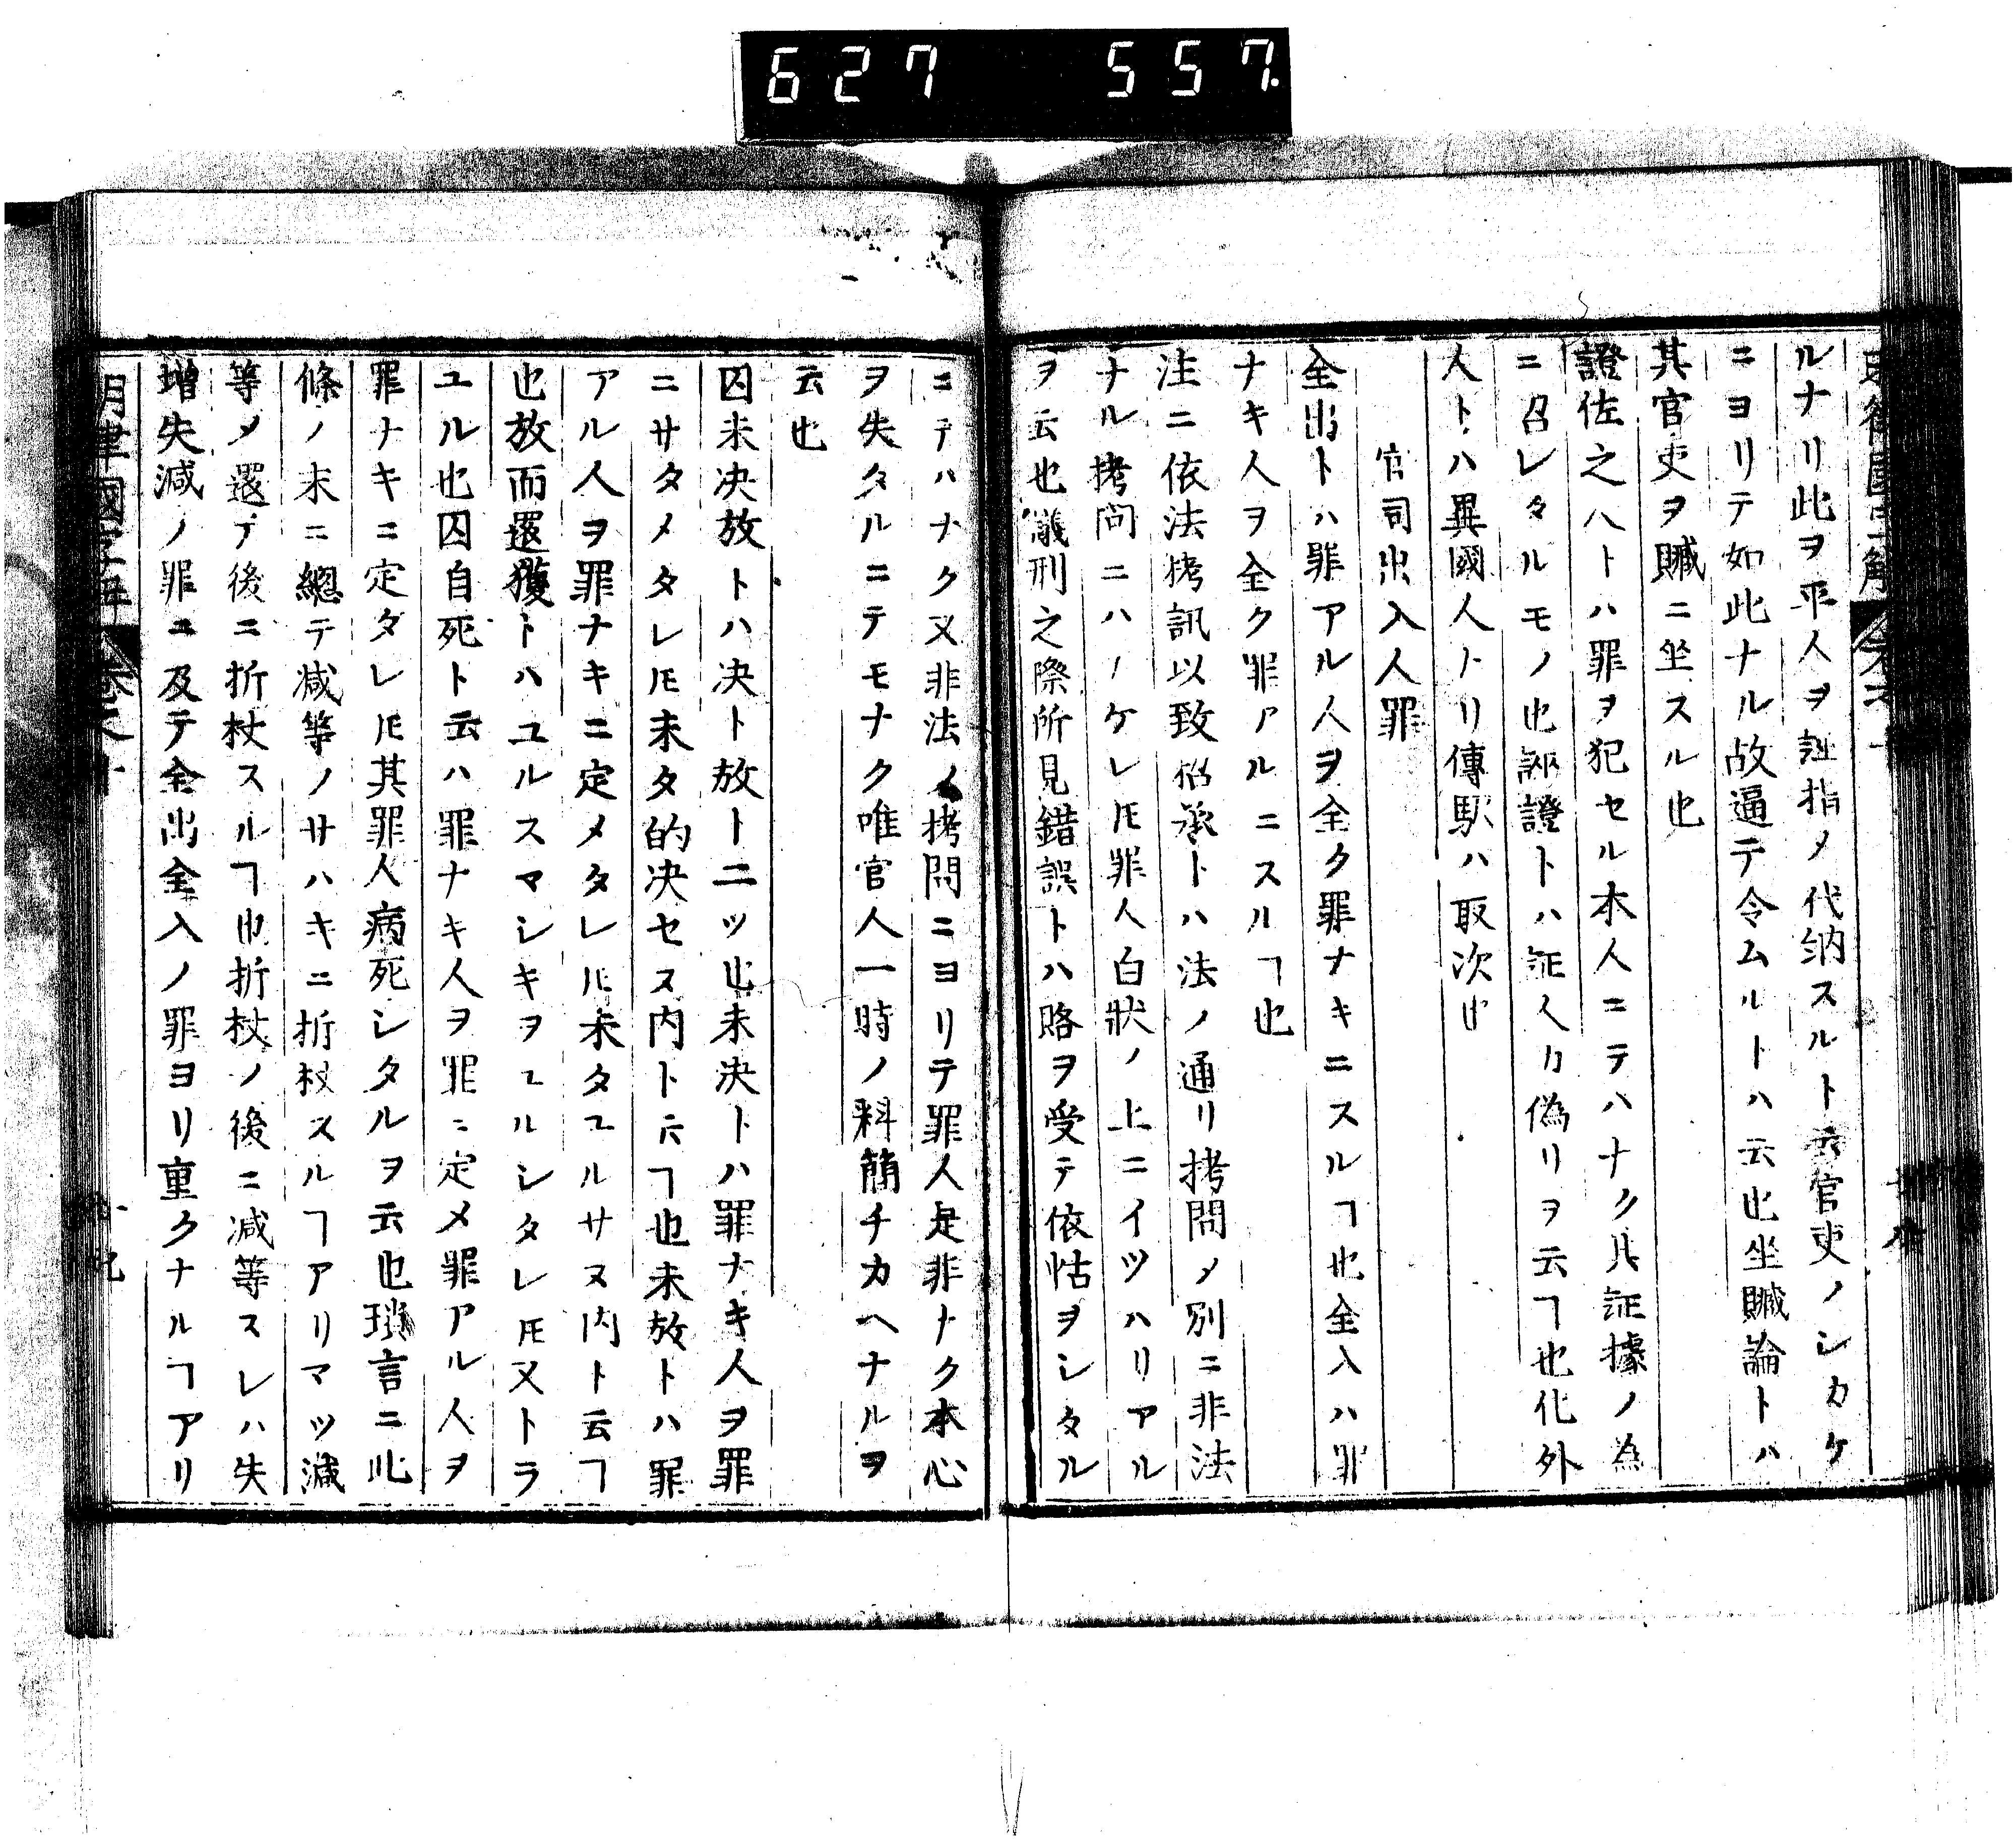 627 557.
ルナリ此ヲ平人ヲ誣指ノ代納スルト云官吏ノシカケ
ニヨリテ如此ナル故逼テ令ムルトハ云也坐贓論トハ
其官吏ヲ贓ニ坐スル也
證佐之人トハ罪ヲ犯セル本人ニテハナク其証據ノ為
ニ召レタルモノ也誣證トハ証人カ偽リヲ云ヿ也化外
人トハ異國人トリ傳駅ハ取次也
官司出入人罪
全出トハ罪アル人ヲ全ク罪ナキニスルヿ也全入ハ罪
ナキ人ヲ全ク罪アルニスルヿ也
注ニ依法拷訊以致招承トハ法ノ通リ拷問メ別ニ非法
ナル拷問ニハノケレ𪜈罪人白状ノ上ニイツハリアル
ヲ云也讞刑之際所見錯誤トハ賂ヲ受テ依怙ヲシタル
ニテハナク又非法ノ拷問ニヨリテ罪人是非ナク本心
ヲ失タルニテモナク唯官人一時ノ料簡チカヘナルヲ
云也
囚未决放トハ决ト放ト二ツ也未决トハ罪ナキ人ヲ罪
ニサタメタレ𪜈未タ的决セス内ト云ヿ也未放トハ罪
アル人ヲ罪ナキニ定メタレ𪜈未タユルサヌ内ト云ヿ
也放而還獲トハユルスマシキヲユルシタレ𪜈又トラ
ユル也囚自死ト云ハ罪ナキ人ヲ罪ニ定メ罪アル人ヲ
罪ナキニ定タレ𪜈其罪人病死シタルヲ云也瑣言ニ此
條ノ末ニ總テ减等ノサハキニ折杖スルヿアリマツ减
等メ還テ後ニ折杖スルヿ也折杖ノ後ニ减等スレハ失
増失减ノ罪ニ及テ全出全入ノ罪ヨリ重クナルヿアリ
明律國字解 巻之